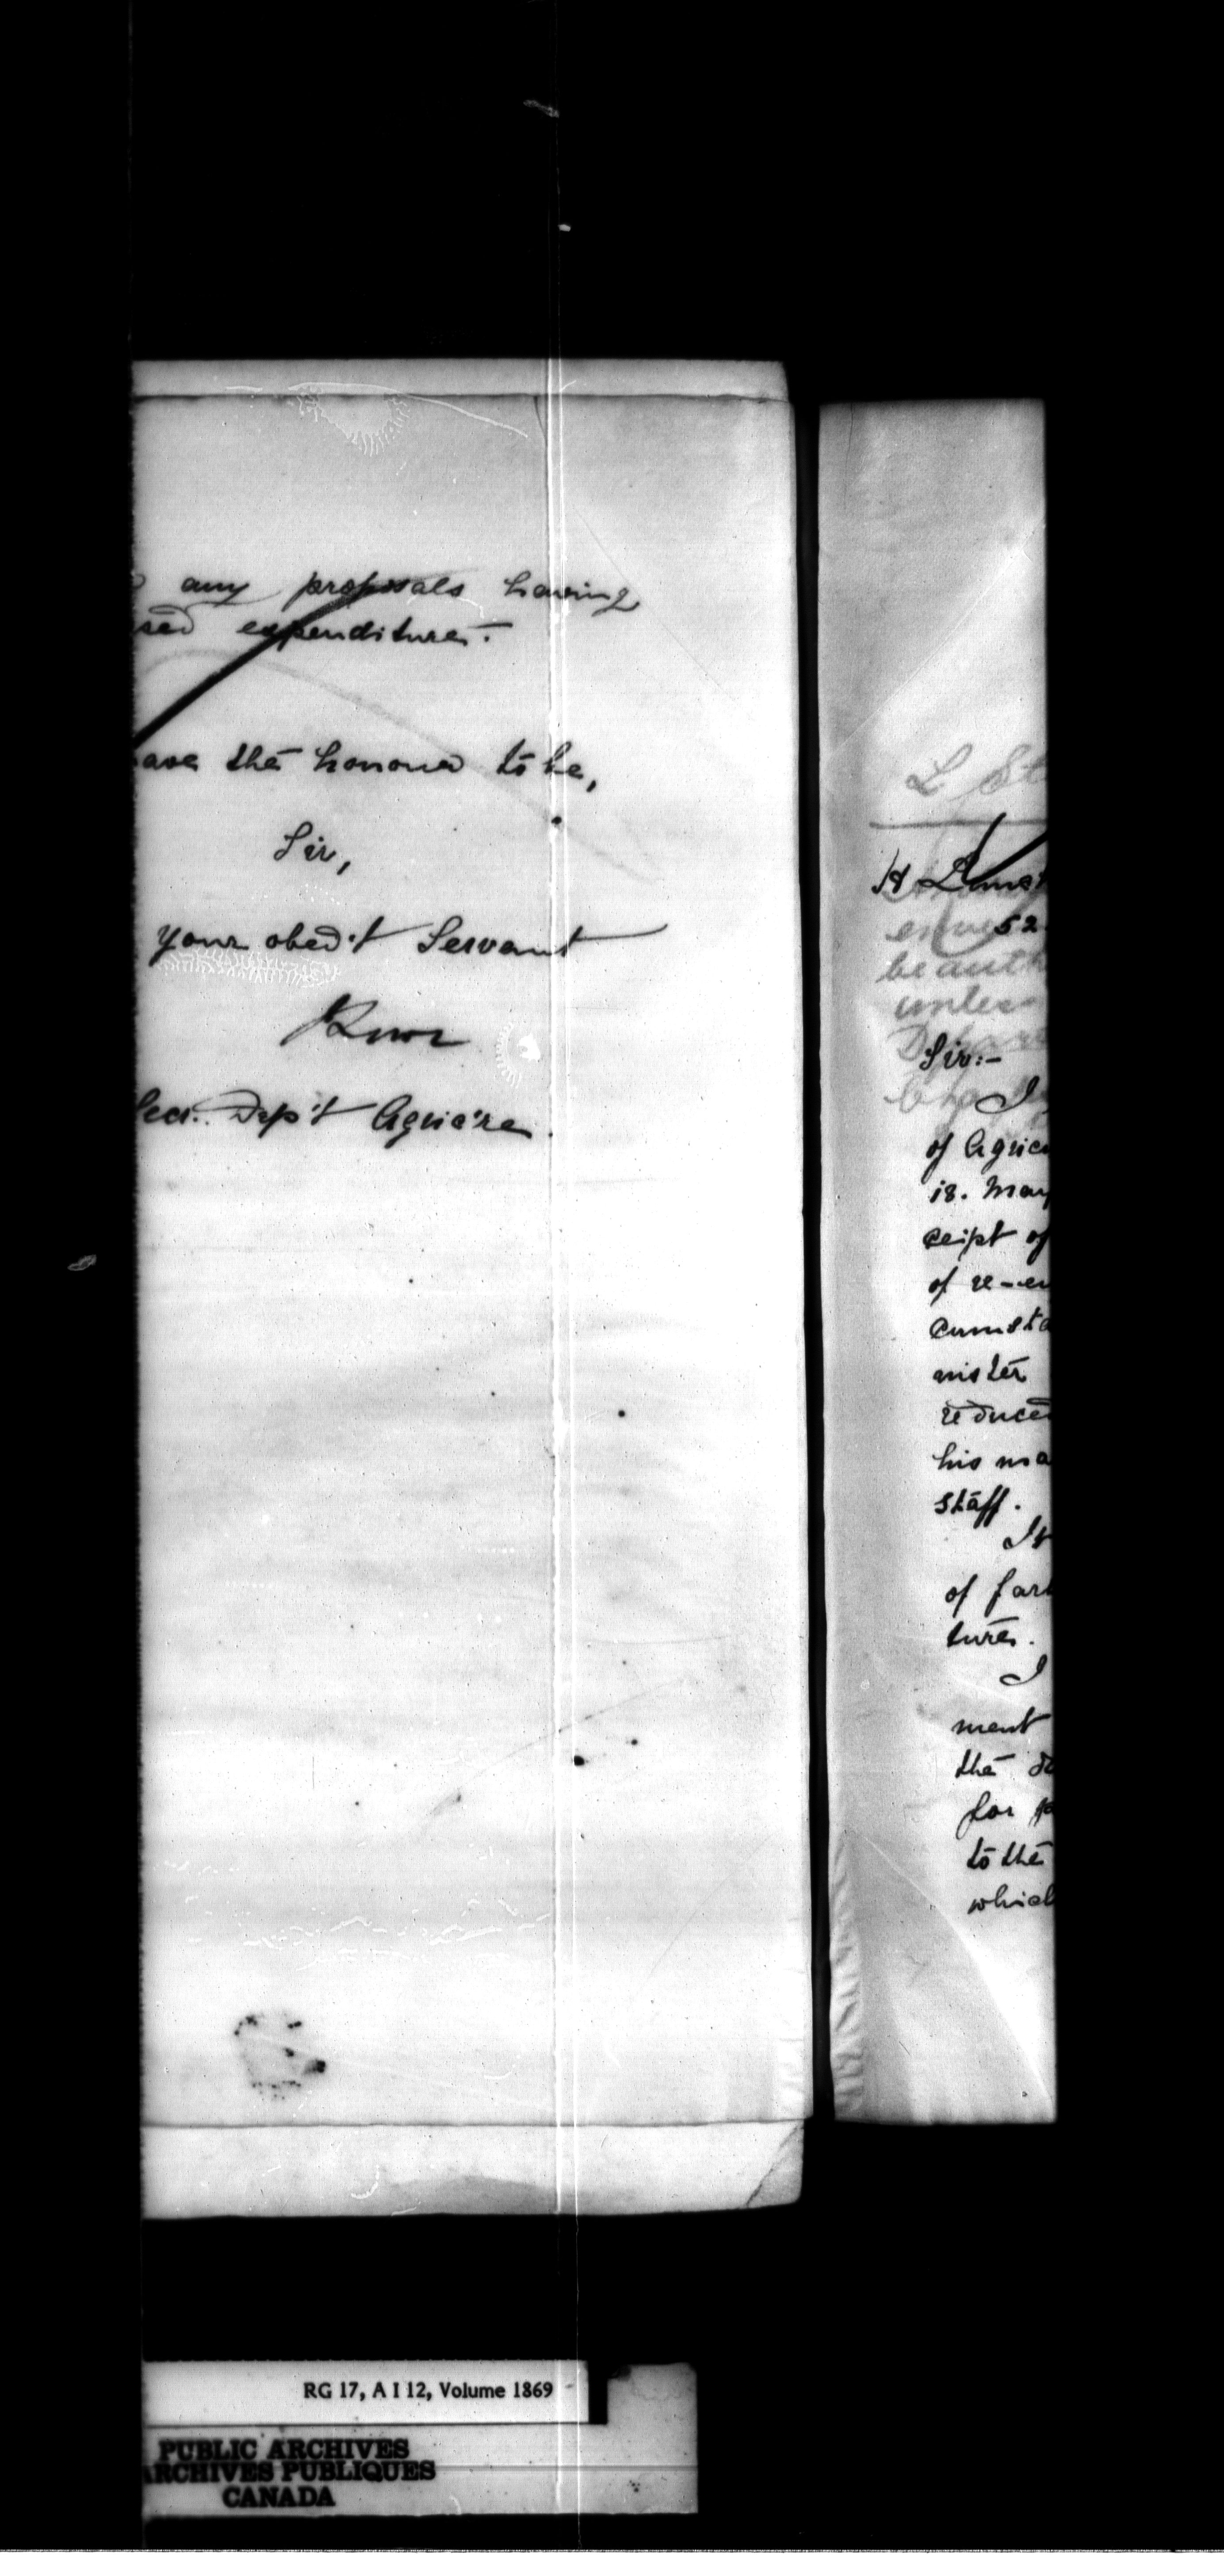 any proposals having
sed expenditures.
ave the honour to be,
Sir,
your obed't Servant
Secr. Dep't Agric're.
L St
52
be auth
unless
Sir:-
I
of Agric
18. May
ceipt of
of re-en
cumsta
nister
reduced
his ma
staff.
It
of fart
tures.
I
ment
the de
for p
to the
which
RG 17, A I 12, Volume 1869
PUBLIC ARCHIVES
ARCHIVES PUBLIQUES
CANADA